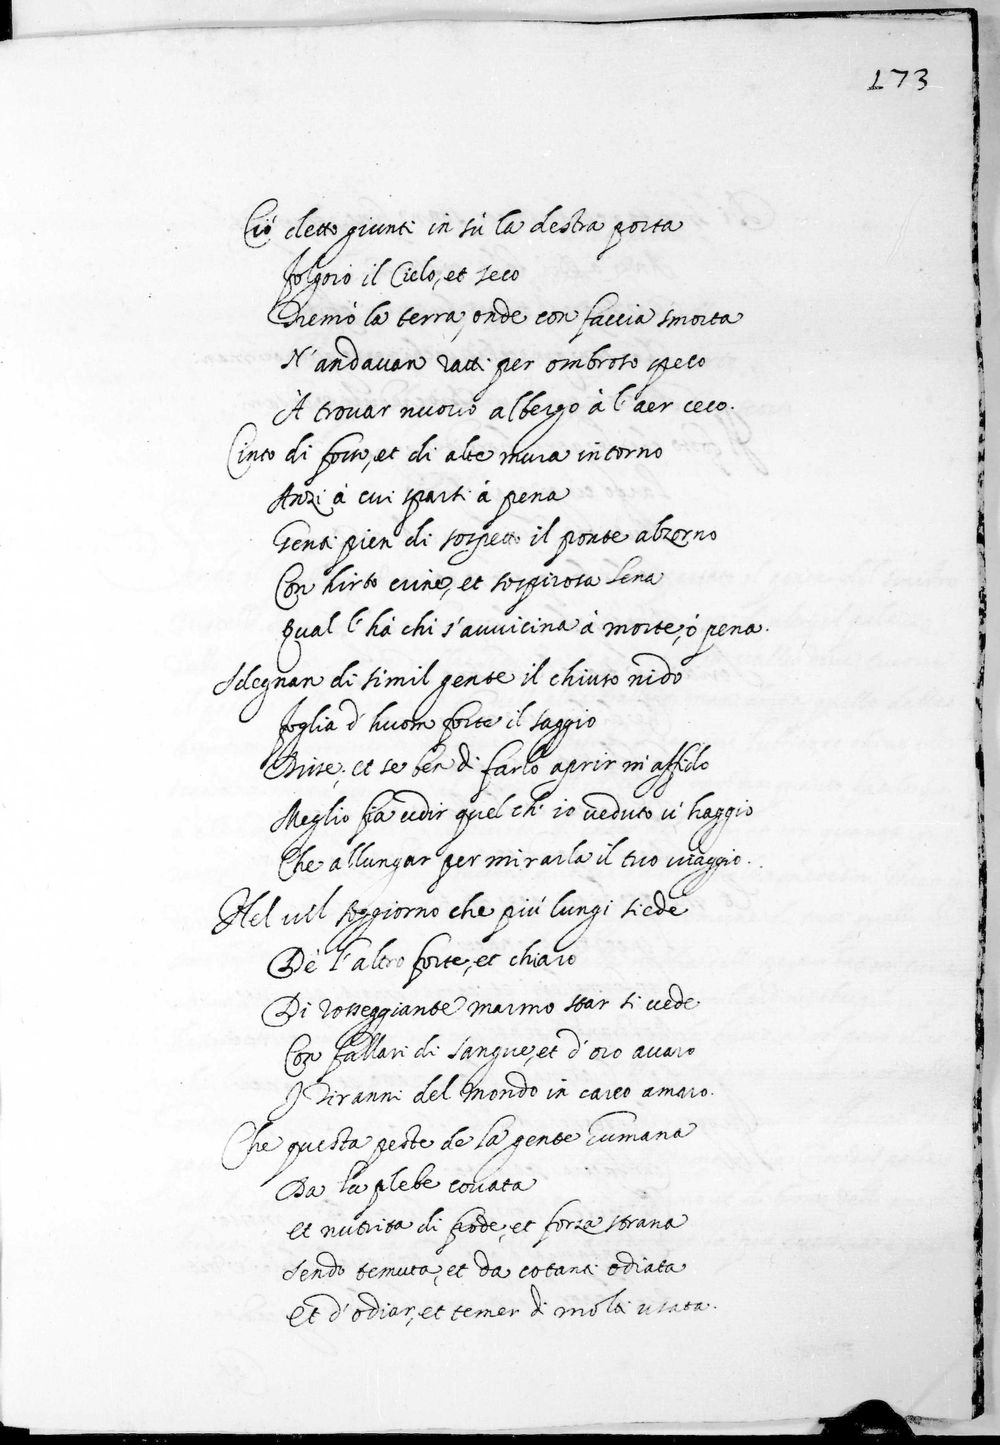 173
Ciò detto giunti in sù la destra porta
Folgorò il Cielo, et seco
Tremò la terra, onde con faccia smorta
N'andauan ratti per ombroso speco
À trouar nuouo albergo à l'aer ceco.
Cinto di forte, et di alte mura intorno
Anzi à cui sparti à pena
Genti pien di sospetto il ponte alzorno
Con hirto crine, et sospirosa lena
Qual l'hà chi s'auuicina à morte, ò pena.
Sdegnan di simil gente il chiuso nido
Foglia d'huom forte il saggio
Disse, et se ben di farlo aprir m'affido
Meglio fia udir quel ch'io ueduto u'haggio
Che allungar per mirarla il tuo uiaggio.
Nel uil soggiorno che più lungi siede
De l'altro forte, et chiaro
Di rosseggiante marmo star si uede
Con fallari di sangue, et d'oro auaro
I Tiranni del mondo in carco amaro.
Che questa peste de la gente humana
Da la plebe couata
et nutrita di frode, et forza strana
Sendo temuta, et da cotanti odiata
et d'odiar, et temer di molti usata.